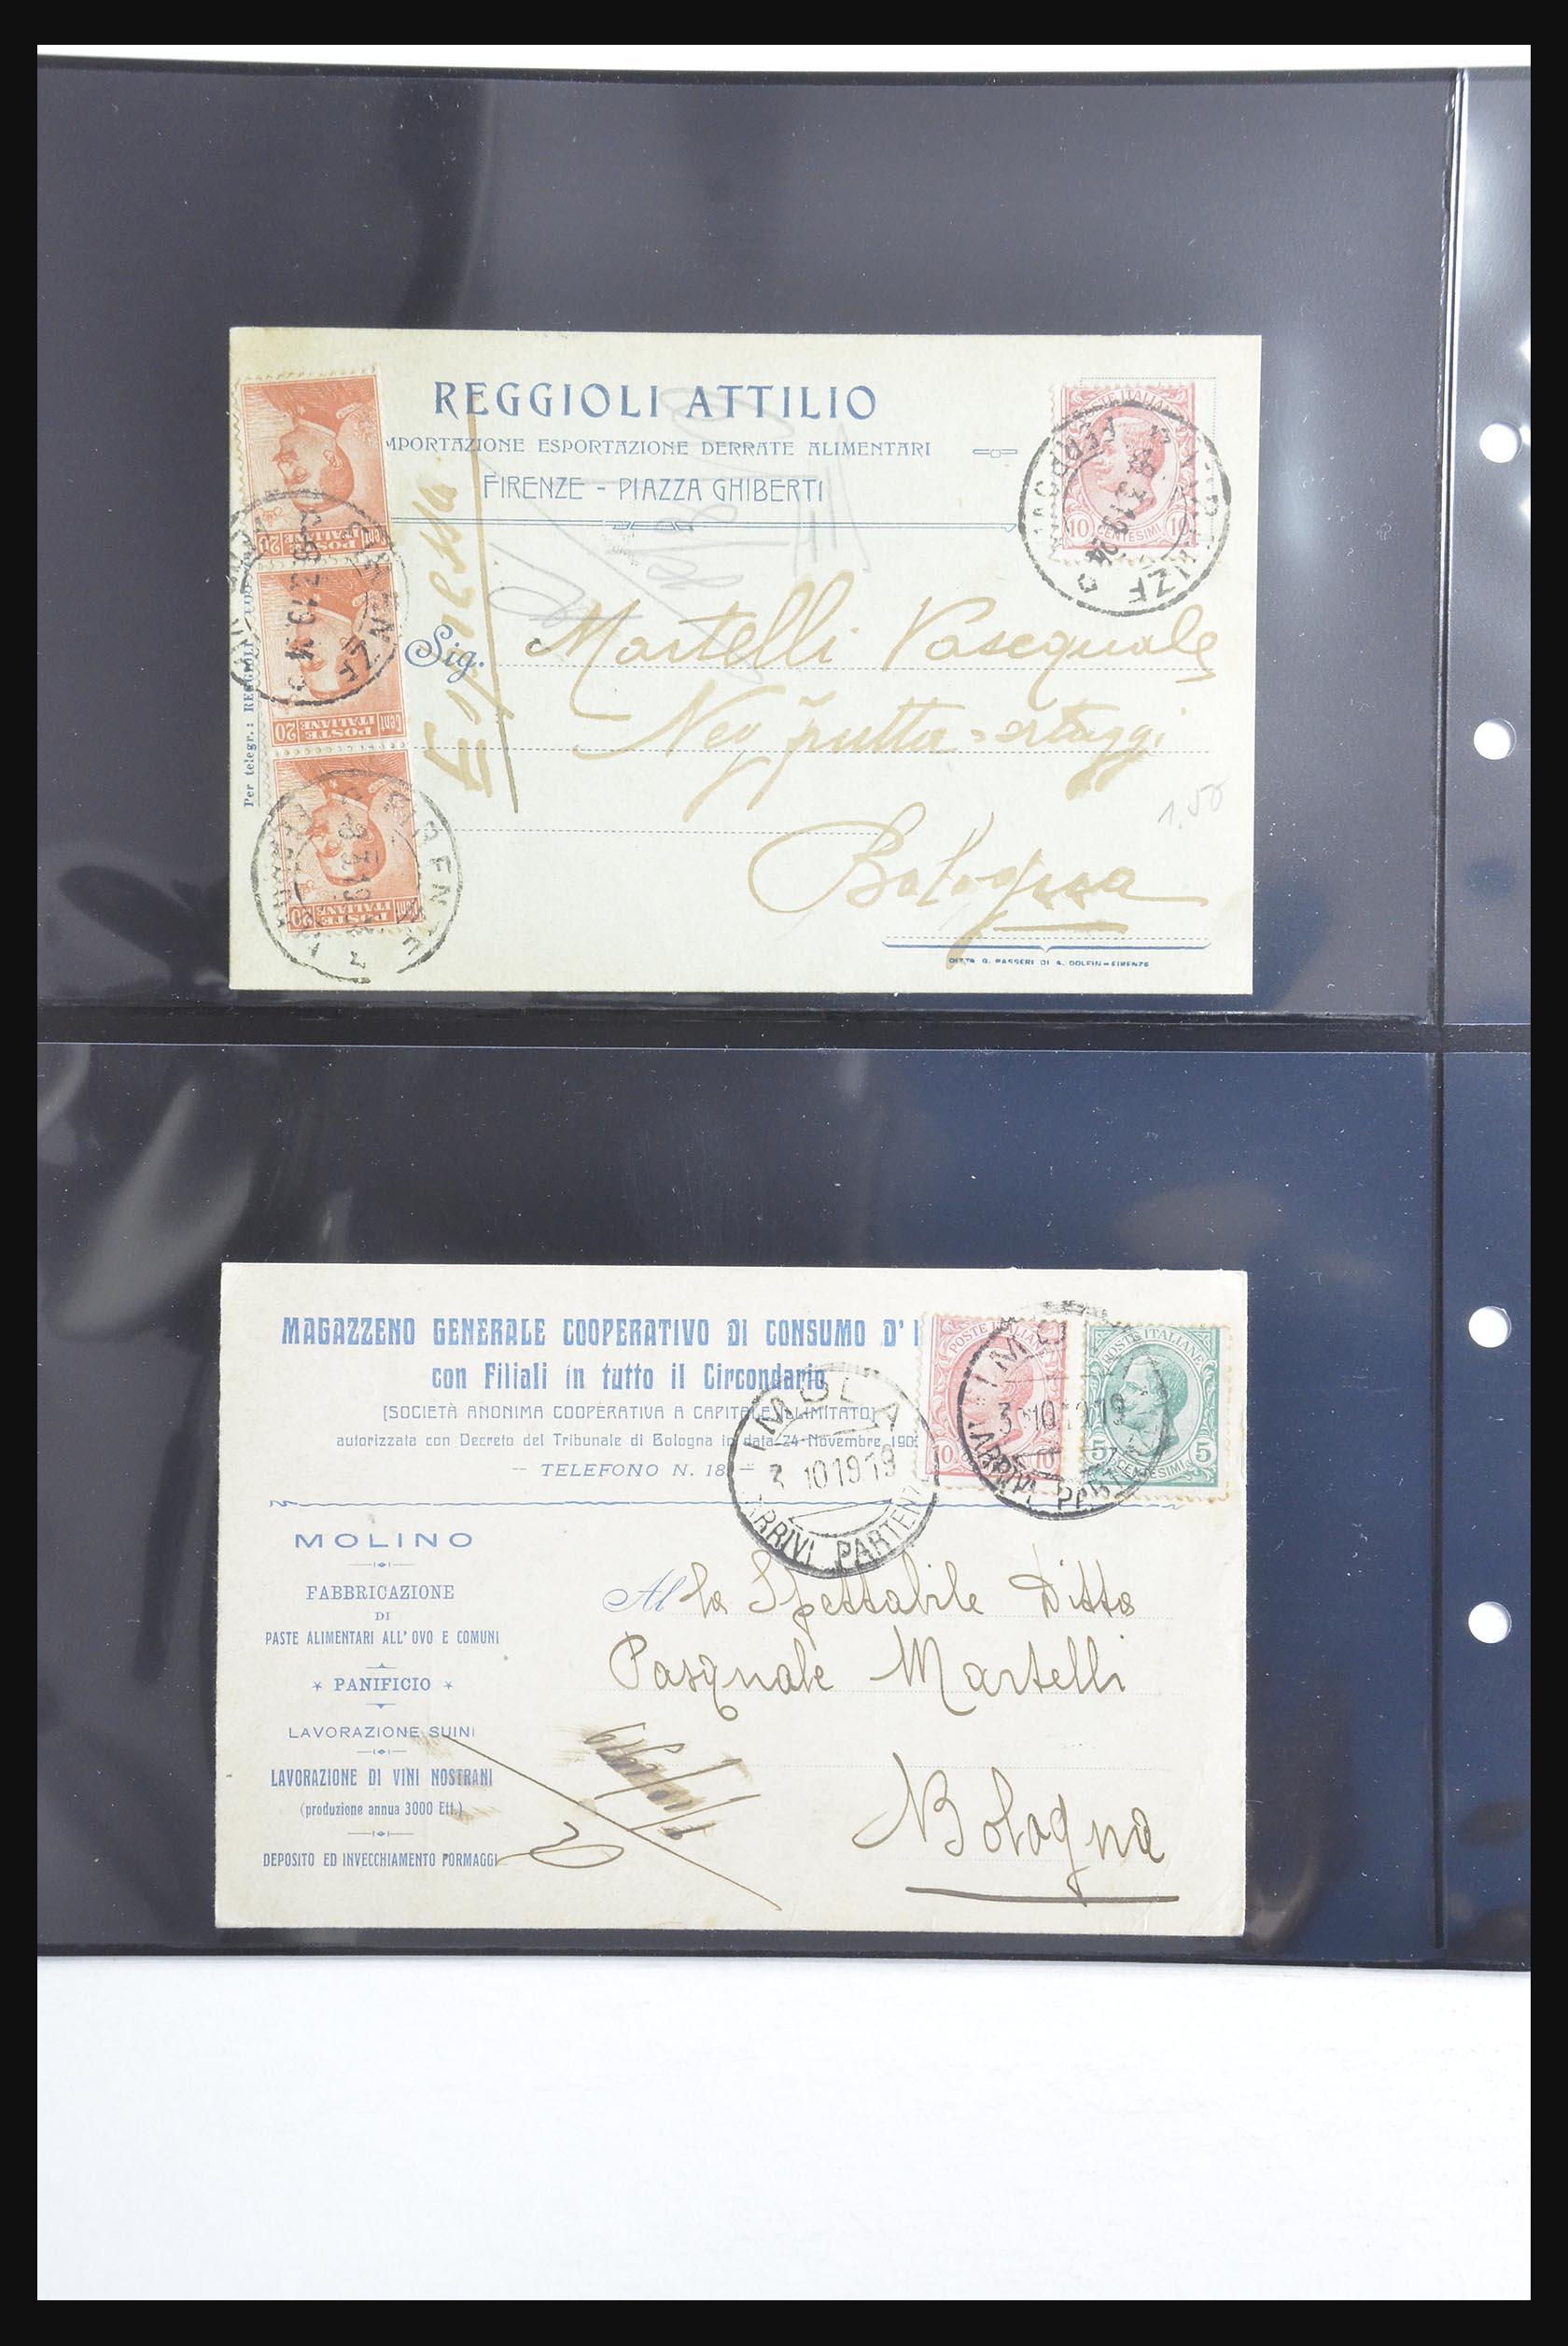 REGGIOLI ATTILIO
MPORTAZIONE ESPORTAZIONE DERRATE ALIMENTARI
FIRENZE - PIAZZA GHIBERTI
Espresso
Per telegr.: REGGIOLI
POSTE ITALIANE
Cent 20
POSTE ITALIANE
Cent 20
POSTE ITALIANE
Cent 20
POSTE ITALIANE
10 CENTESIMI 10
FERROVIA
Sig. Martelli Pasquale
Neg frutta - ortaggi
1.50
Bologna
DITTA G. PASSERI DI A. DOLFIN - FIRENZE
MAGAZZENO GENERALE COOPERATIVO DI CONSUMO D' I
con Filiali in tutto il Circondario
(SOCIETÀ ANONIMA COOPERATIVA A CAPITALE ILLIMITATO)
autorizzata con Decreto del Tribunale di Bologna in data 24 Novembre 190
-- TELEFONO N. 18 --
POSTE ITALIANE
10 10
POSTE ITALIANE
5 CENTESIMI 5
IMOLA
3 10 19 19
ARRIVI PARTENZE
IMOLA
3 10 19 19
ARRIVI PARTENZE
MOLINO
FABBRICAZIONE
DI
PASTE ALIMENTARI ALL' OVO E COMUNI
* PANIFICIO *
LAVORAZIONE SUINI
LAVORAZIONE DI VINI NOSTRANI
(produzione annua 3000 Ett.)
DEPOSITO ED INVECCHIAMENTO FORMAGGI
Al la Spettabile Ditta
Pasquale Martelli
Bologna